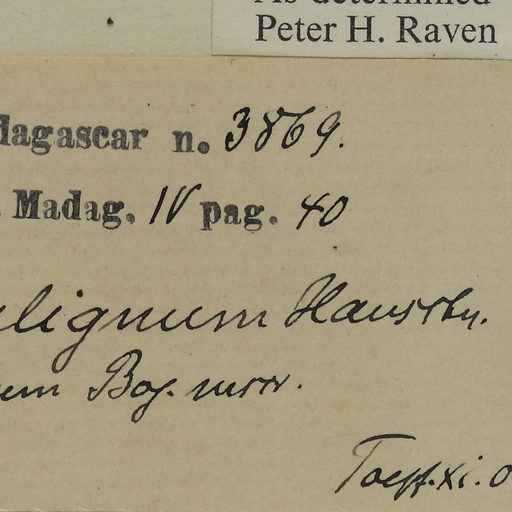 As determined
Peter H. Raven
dagascar n. 3869.
. Madag. IV pag. 40
alignum Hausskn.
um Boj. msor.
Toepf. xi. 0